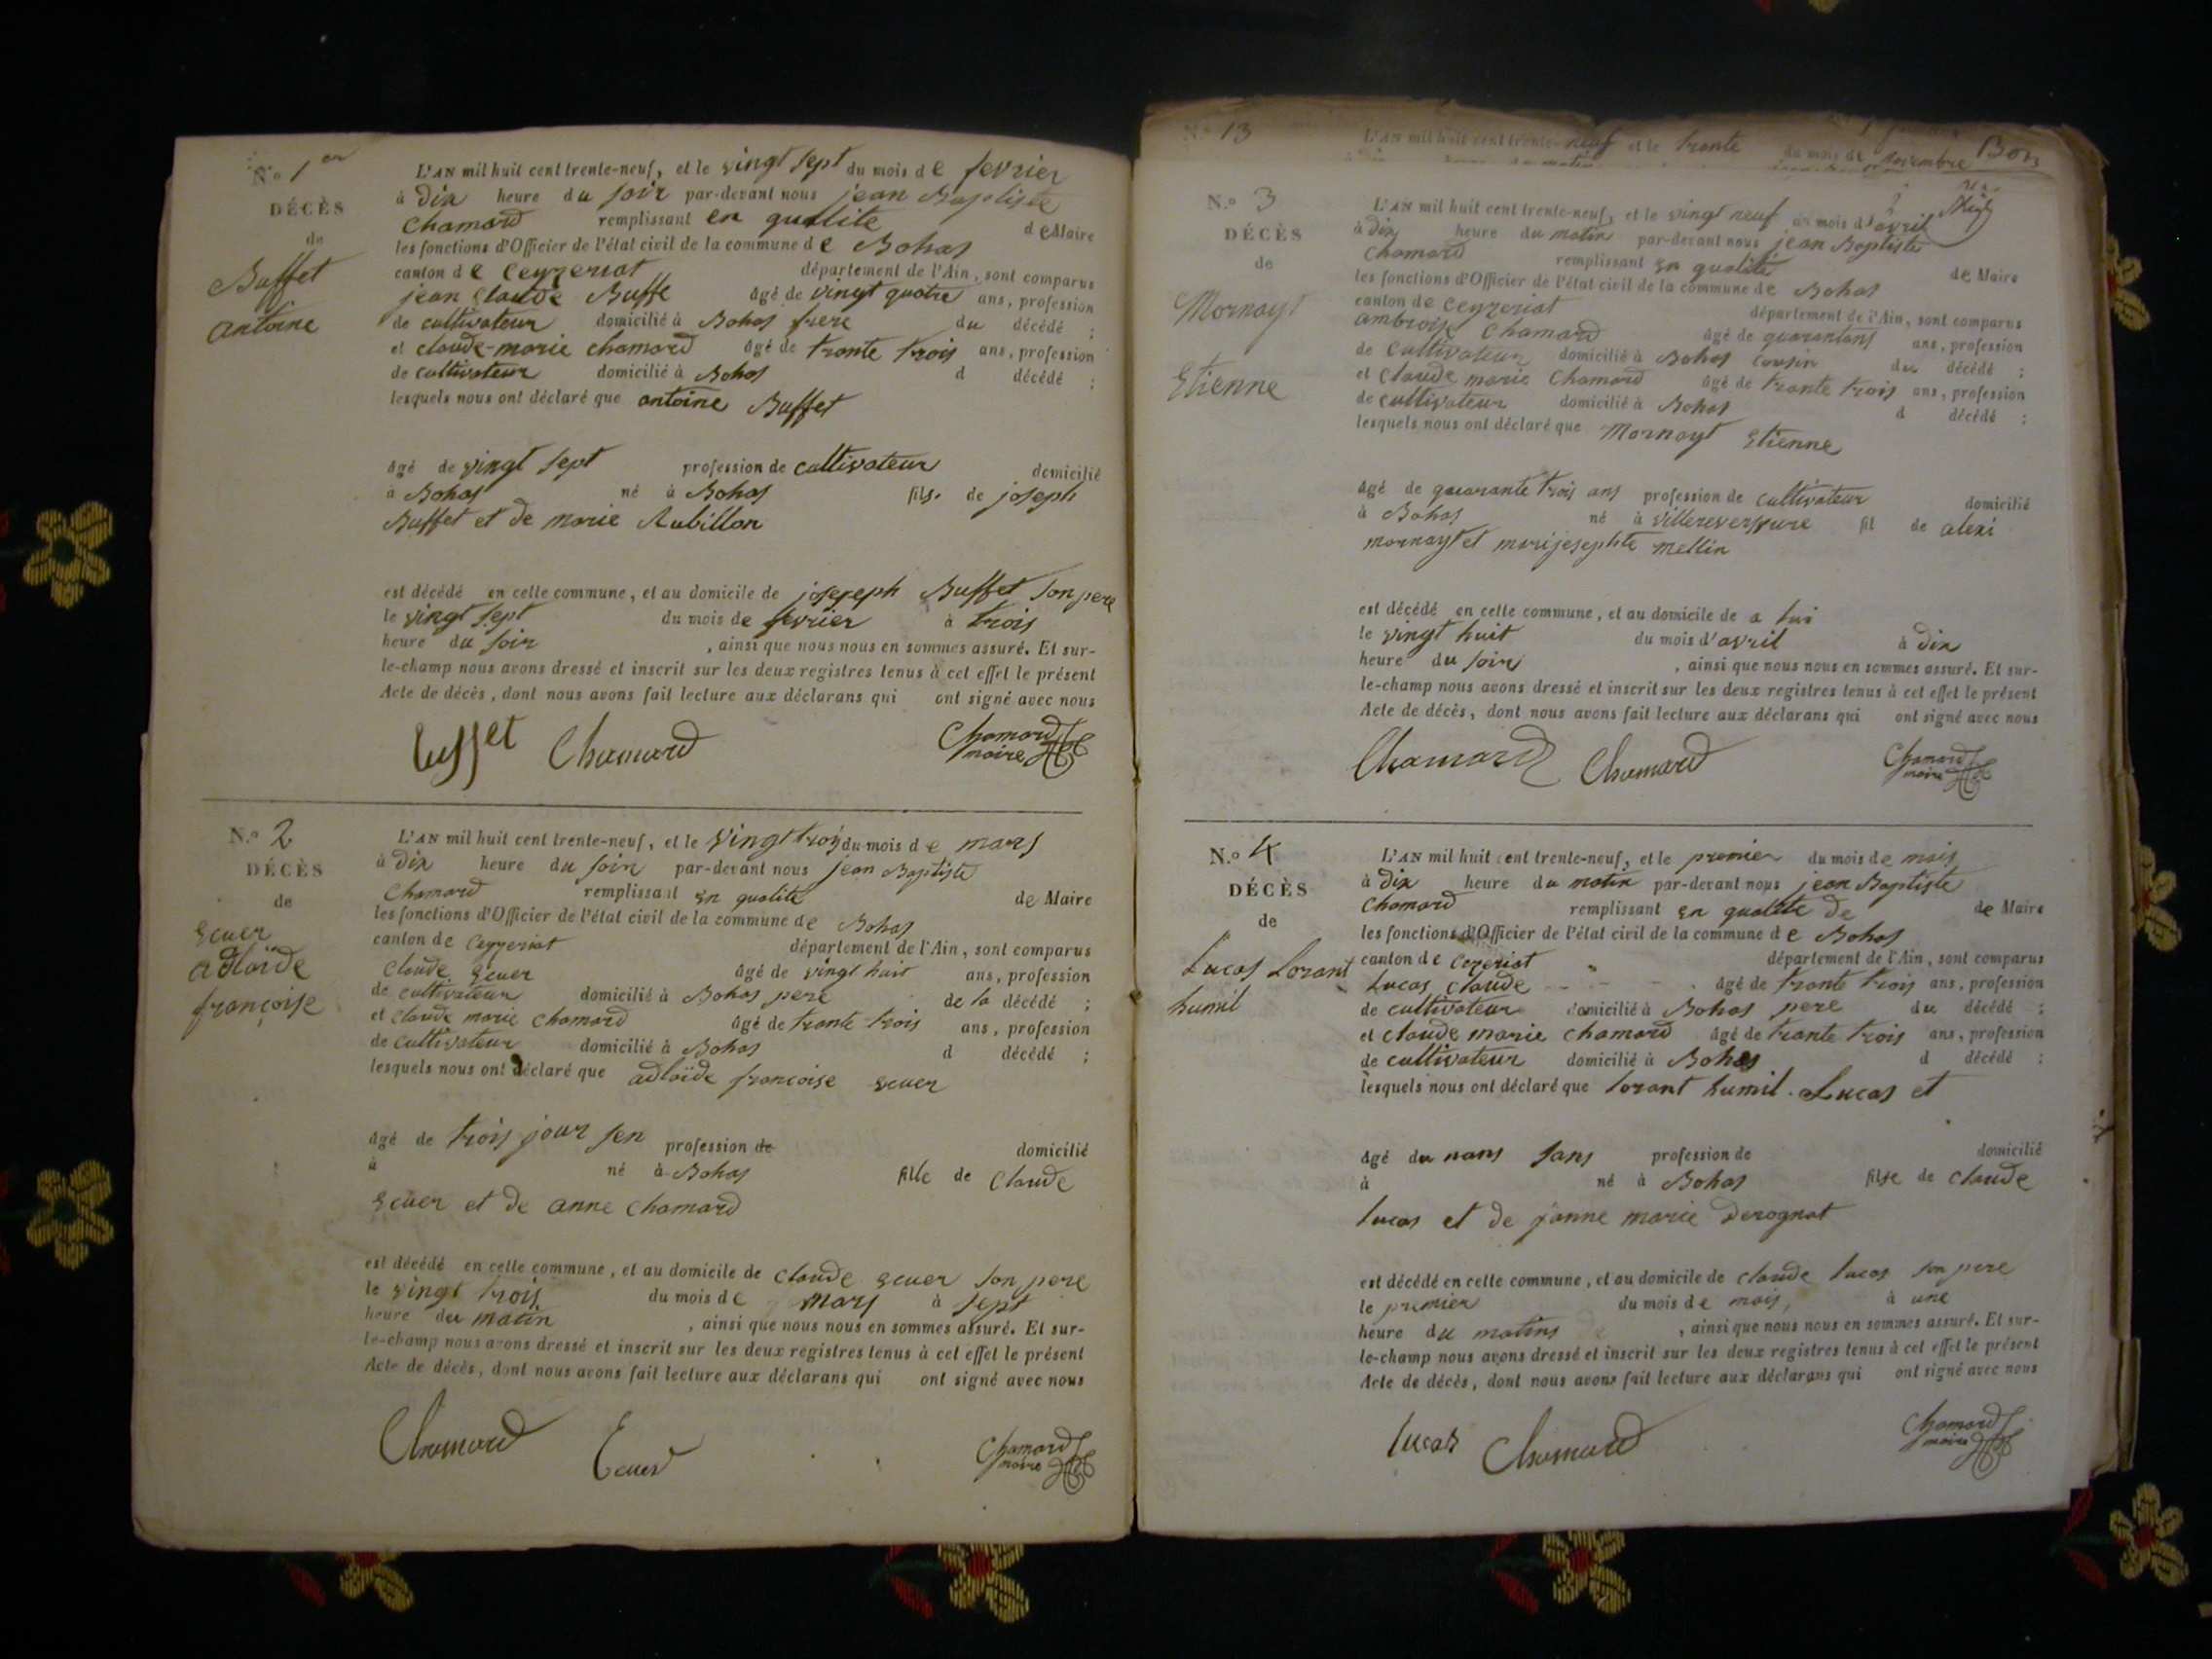 N.o 1er
DÉCÈS
de
Buffet
antoine
L'AN mil huit cent trente-neuf, et le vingt sept du mois de fevrier
à dix heure du soir par-devant nous jean Baptiste
chamard remplissant en qualite de Maire
les fonctions d'Officier de l'état civil de la commune de Bohas
canton de Ceyzeriat département de l'Ain, sont comparus
jean claude Buffe âgé de vingt quatre ans, profession
de cultivateur domicilié à Bohas frere du décédé ;
et claude-marie chamard âgé de trante trois ans, profession
de cultivateur domicilié à Bohas d décédé ;
lesquels nous ont déclaré que antoine Buffet
âgé de vingt sept profession de cultivateur domicilié
à Bohas né à Bohas fils. de joseph
Buffet et de marie Rubillon
est décédé en cette commune, et au domicile de josepeph Buffet son pere
le vingt sept du mois de fevrier à trois
heure du soir , ainsi que nous nous en sommes assuré. Et sur-
le-champ nous avons dressé et inscrit sur les deux registres tenus à cet effet le présent
Acte de décès, dont nous avons fait lecture aux déclarans qui ont signé avec nous
buffet Chamard Chamard
maire
N.o 2
DÉCÈS
de
Ecuer
adlaïde
françoise
L'AN mil huit cent trente-neuf, et le vingt trois du mois de mars
à dix heure du soir par-devant nous jean Baptiste
Chamard remplissant en qualite de Maire
les fonctions d'Officier de l'état civil de la commune de Bohas
canton de Ceyzeriat département de l'Ain, sont comparus
Claude Ecuer âgé de vingt huit ans, profession
de cultivateur domicilié à Bohas pere de la décédé ;
et claude marie chamard âgé de trante trois ans, profession
de cultivateur domicilié à Bohas d décédé ;
lesquels nous ont déclaré que adlaïde françoise Ecuer
âgé de trois jour sen profession de domicilié
à né à Bohas fille de Claude
Ecuer et de anne chamard
est décédé en cette commune, et au domicile de claude Ecuer son pere
le vingt trois du mois de mars à sept
heure du matin , ainsi que nous nous en sommes assuré. Et sur-
le-champ nous avons dressé et inscrit sur les deux registres tenus à cet effet le présent
Acte de décès, dont nous avons fait lecture aux déclarans qui ont signé avec nous
Chamard Ecuer Chamard
maire
N.o 13
L'AN mil huit cent trente-neuf et le trante du mois de novembre
N.o 3
DÉCÈS
de
Mornayt
Etienne
L'AN mil huit cent trente-neuf, et le vingt neuf du mois d'avril
à dix heure du matin par-devant nous jean Baptiste
Chamard remplissant en qualité de Maire
les fonctions d'Officier de l'état civil de la commune de Bohas
canton de ceyzeriat département de l'Ain, sont comparus
ambroise Chamard âgé de quarantans ans, profession
de cultivateur domicilié à Bohas cousin du décédé ;
et Claude marie Chamard âgé de trante trois ans, profession
de cultivateur domicilié à Bohas d décédé ;
lesquels nous ont déclaré que Mornayt Etienne
âgé de quarante trois ans profession de cultivateur domicilié
à Bohas né à villereversure fil de alexi
mornayt et marijosephte mellin
est décédé en cette commune, et au domicile de a lui
le vingt huit du mois d'avril à dix
heure du soir , ainsi que nous nous en sommes assuré. Et sur-
le-champ nous avons dressé et inscrit sur les deux registres tenus à cet effet le présent
Acte de décès, dont nous avons fait lecture aux déclarans qui ont signé avec nous
Chamard Chamard Chamard
maire
N.o 4
DÉCÈS
de
Lucas Lorant
humil
L'AN mil huit cent trente-neuf, et le premier du mois de mais
à dix heure du matin par-devant nous jean Baptiste
Chamard remplissant en qualite de de Maire
les fonctions d'Officier de l'état civil de la commune de Bohas
canton de cezeriat département de l'Ain, sont comparus
Lucas claude âgé de trante trois ans, profession
de cultivateur domicilié à Bohas pere du décédé ;
et claude marie chamard âgé de trante trois ans, profession
de cultivateur domicilié à Bohas d décédé ;
lesquels nous ont déclaré que lorant humil . Lucas et
âgé du nans sans profession de domicilié
à né à Bohas filse de claude
lucas et de janne marie Derognat
est décédé en cette commune, et au domicile de claude lucas son pere
le premier du mois de mais, à une
heure du matins , ainsi que nous nous en sommes assuré. Et sur-
le-champ nous avons dressé et inscrit sur les deux registres tenus à cet effet le présent
Acte de décès, dont nous avons fait lecture aux déclarans qui ont signé avec nous
lucas Chamard Chamard
maire